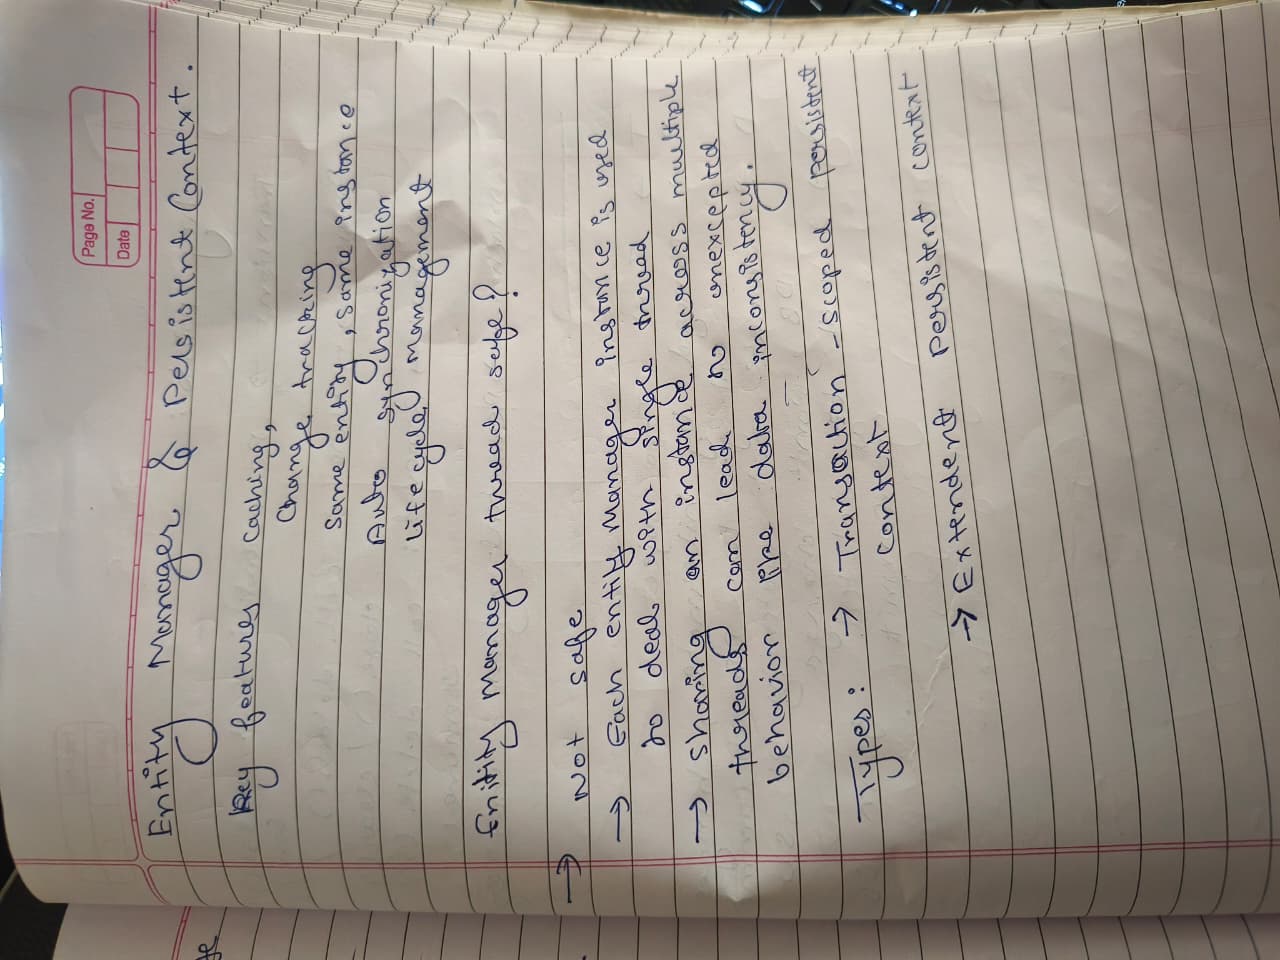 Page No.
Date
Entity Manager & Persistent Context.
Key features caching,
Change tracking
Same entity, same instance
Auto synchronization
Life cycle management
Entity manager thread safe?
→ Not safe
→ Each entity Manager instance is used
to deal with single thread
→ Sharing an instance across multiple
threads can lead to unexcepted
behavior like data inconsistency.
Types: → Transation - scoped persistent
context
→ Extendent persistent context